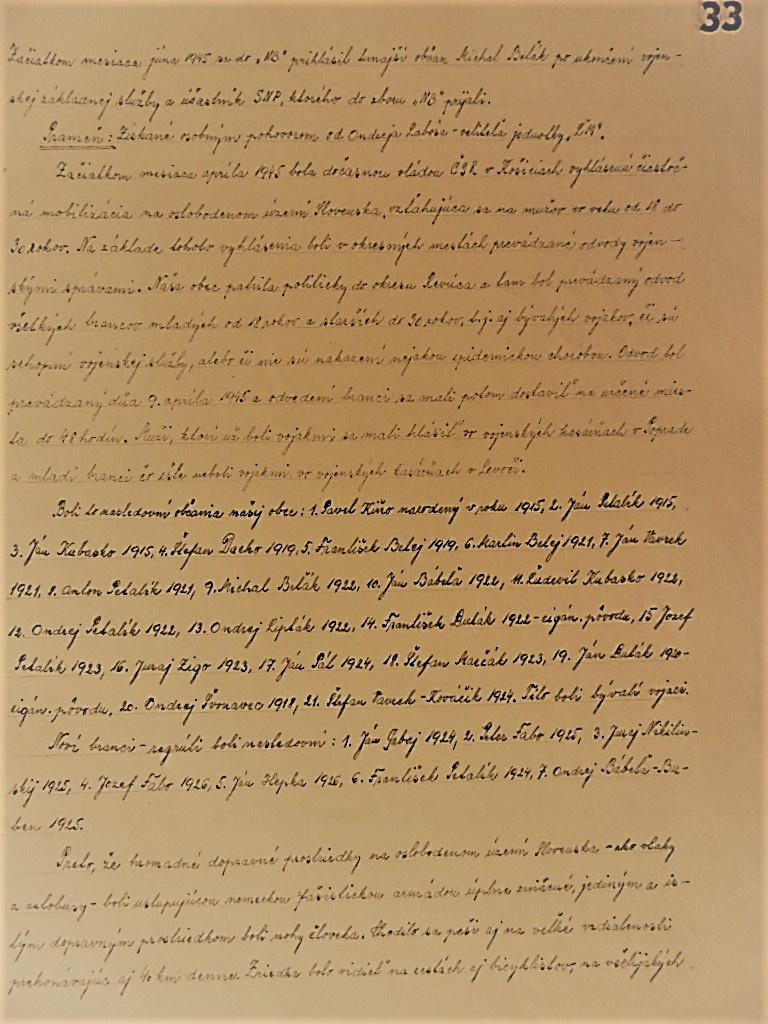 33
Začiatkom mesiaca júna 1945 sa do „NB" prihlásil tunajší občan Michal Belák po ukončení vojen-
skej základnej služby a účastník SNP, ktorého do zboru „NB" prijali.
Prameň: Získané osobným pohovorom od Ondreja Laboša - veliteľa jednotky
Začiatkom mesiaca apríla 1945 bola dočasnou vládou ČSR v Košiciach vyhlásená čiastoč-
ná mobilizácia na oslobodenom území Slovenska, vzťahujúca sa na mužov vo veku od 18 do
30 rokov. Na základe tohoto vyhlásenia boli v okresných mestách prevádzané odvody vojen-
skými správami. Naša obec patrila politicky do okresu Revúca a tam bol prevádzaný odvod
všetkých brancov mladých od 18 rokov a starších do 30 rokov, t.j. aj bývalých vojakov, či sú
schopní vojenskej služby, alebo či nie sú nakazení nejakou epidemickou chorobou. Odvod bol
prevádzaný dňa 9. apríla 1945 a odvedení branci sa mali potom dostaviť na určené mies-
ta do 48 hodín. Muži, ktorí už boli vojakmi sa mali hlásiť vo vojenských kasárňach v Poprade
a mladí branci čo ešte neboli vojakmi, vo vojenských kasárňach v Levoči.
Boli to nasledovní občania našej obce: 1. Pavel Kiňo narodený v roku 1915, 2. Ján Petalík 1915,
3. Ján Kubasko 1915, 4. Štefan Dacho 1919, 5. František Belej 1919, 6. Martin Belej 1921, 7. Ján Vavrek
1921, 8. Anton Petalík 1921, 9. Michal Belák 1922, 10. Ján Bábeľa 1922, 11. Ľudevit Kubasko 1922,
12. Ondrej Petalík 1922, 13. Ondrej Lipták 1922, 14. František Bulák 1922 - cigán. pôvodu, 15 Jozef
Petalík 1923, 16. Juraj Zigo 1923, 17. Ján Pál 1924, 18. Štefan Marčák 1923, 19. Ján Bulák 1920-
cigán. pôvodu, 20. Ondrej Švonavec 1918, 21. Štefan Vavrek-Kováčik 1924. Títo boli bývalí vojaci.
Noví branci - regrúti boli nasledovní: 1. Ján Gabej 1924, 2. Peter Fábo 1925, 3. Juraj Nikitin-
skij 1925, 4. Jozef Fábo 1926, 5. Ján Hepka 1926, 6. František Petalík 1924, 7. Ondrej Bábeľa-Bu-
ben 1925.
Preto, že hromadné dopravné prostriedky na oslobodenom území Slovenska - ako vlaky
a autobusy - boli ustupujúcou nemeckou fašistickou armádou úplne zničené, jediným a is-
tým dopravným prostriedkom boli nohy človeka. Chodilo sa peši aj na veľké vzdialenosti
prekonávajúc aj 40 km denne. Zriedka bolo vidieť na cestách aj bicyklistov, na všelijakých